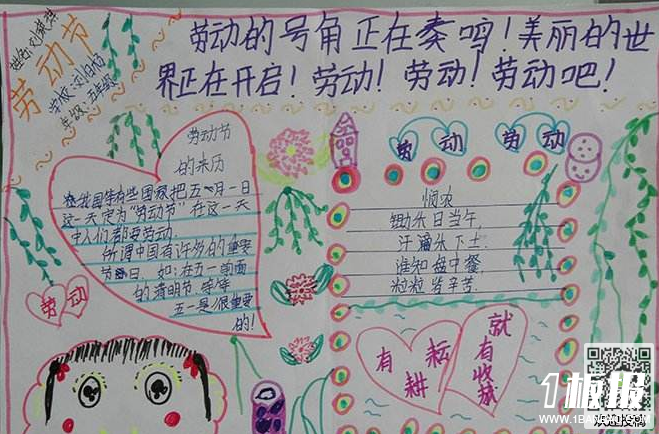 劳动节
姓名:刘
学校:刘
年级:五年级
劳动的号角正在奏鸣!美丽的世
界正在开启!劳动!劳动!劳动吧!
劳动节
的来历
在我国年有些国家把五一月一日
这一天定为“劳动节”在这一天
中人们都要劳动。
所谓中国有许多的重要
节日,如:在五一前面
的清明节等等
五一是很重要
的!
劳动
劳动
劳动
悯农
锄禾日当午,
汗滴禾下土.
谁知盘中餐,
粒粒皆辛苦.
有耕耘
就有收获
1板报
WWW.1BANBAO.COM
欢迎投稿